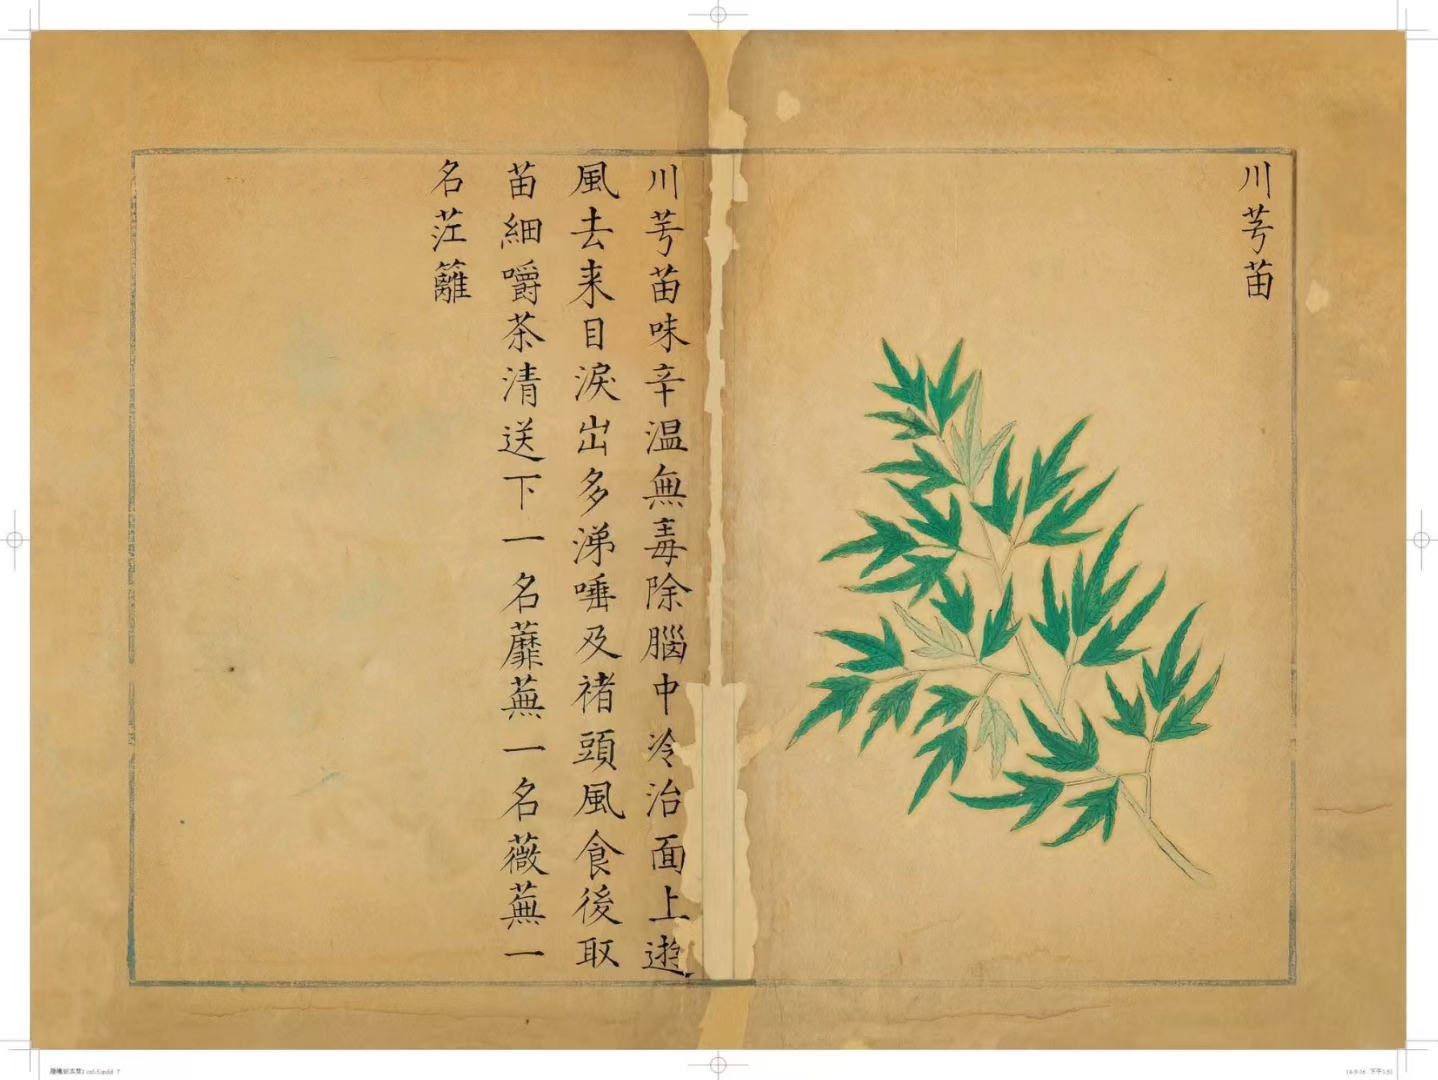 川芎苗
川芎苗味辛温無毒除腦中冷治面上遊
風去来目淚出多涕唾及褚頭風食後取
苗細嚼茶清送下一名蘼蕪一名薇蕪一
名茳籬